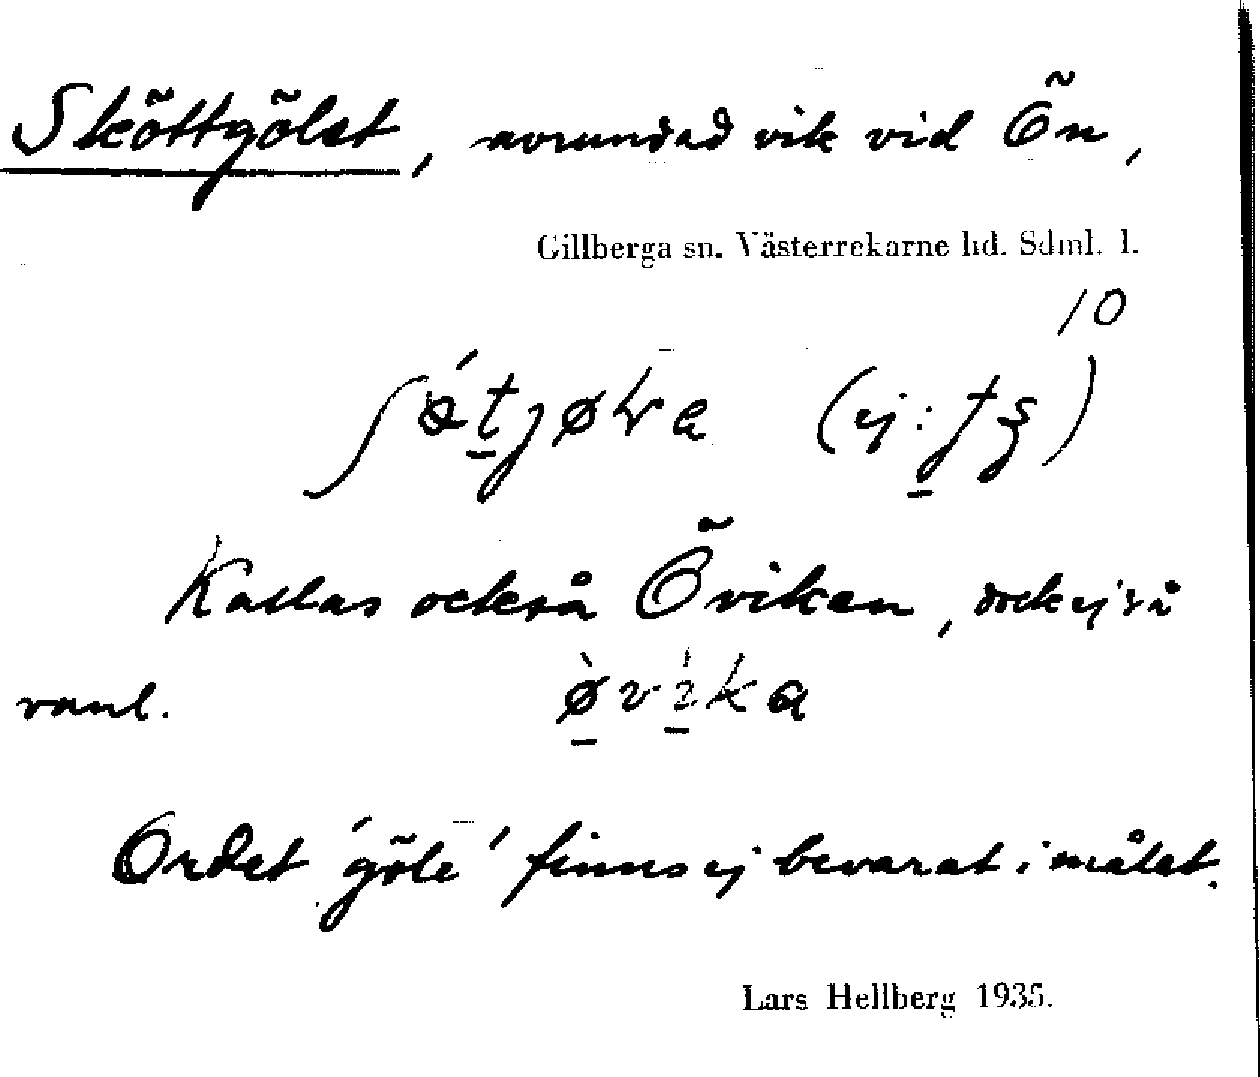 Sköttgölet, avrundad vik vid Ön,
Gillberga sn. Västerrekarne hd. Sdml. l.
10
(ej:
Kallas också Öviken, dock ej så
vanl. øvika
Ordet 'göle' finns ej bevarat i målet.
Lars Hellberg 1935.